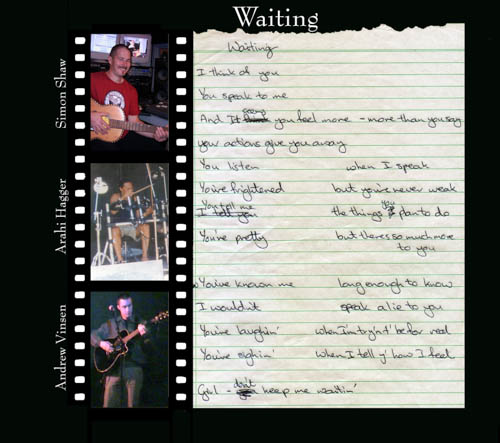 Waiting
Simon Shaw
Arahi Hagger
Andrew Vinsen
Waiting
I think of you
You speak to me
And It seems you feel more - more than you say
your actions give you away
You listen when I speak
You're frightened but you're never weak
You tell me the things you plan to do
You're pretty but theres so much more
to you
You've known me long enough to know
I wouldn't speak a lie to you
You're laughin' when I'm tryin't' be for real
You're sighin' when I tell y' how I feel
Girl - don't keep me waitin'